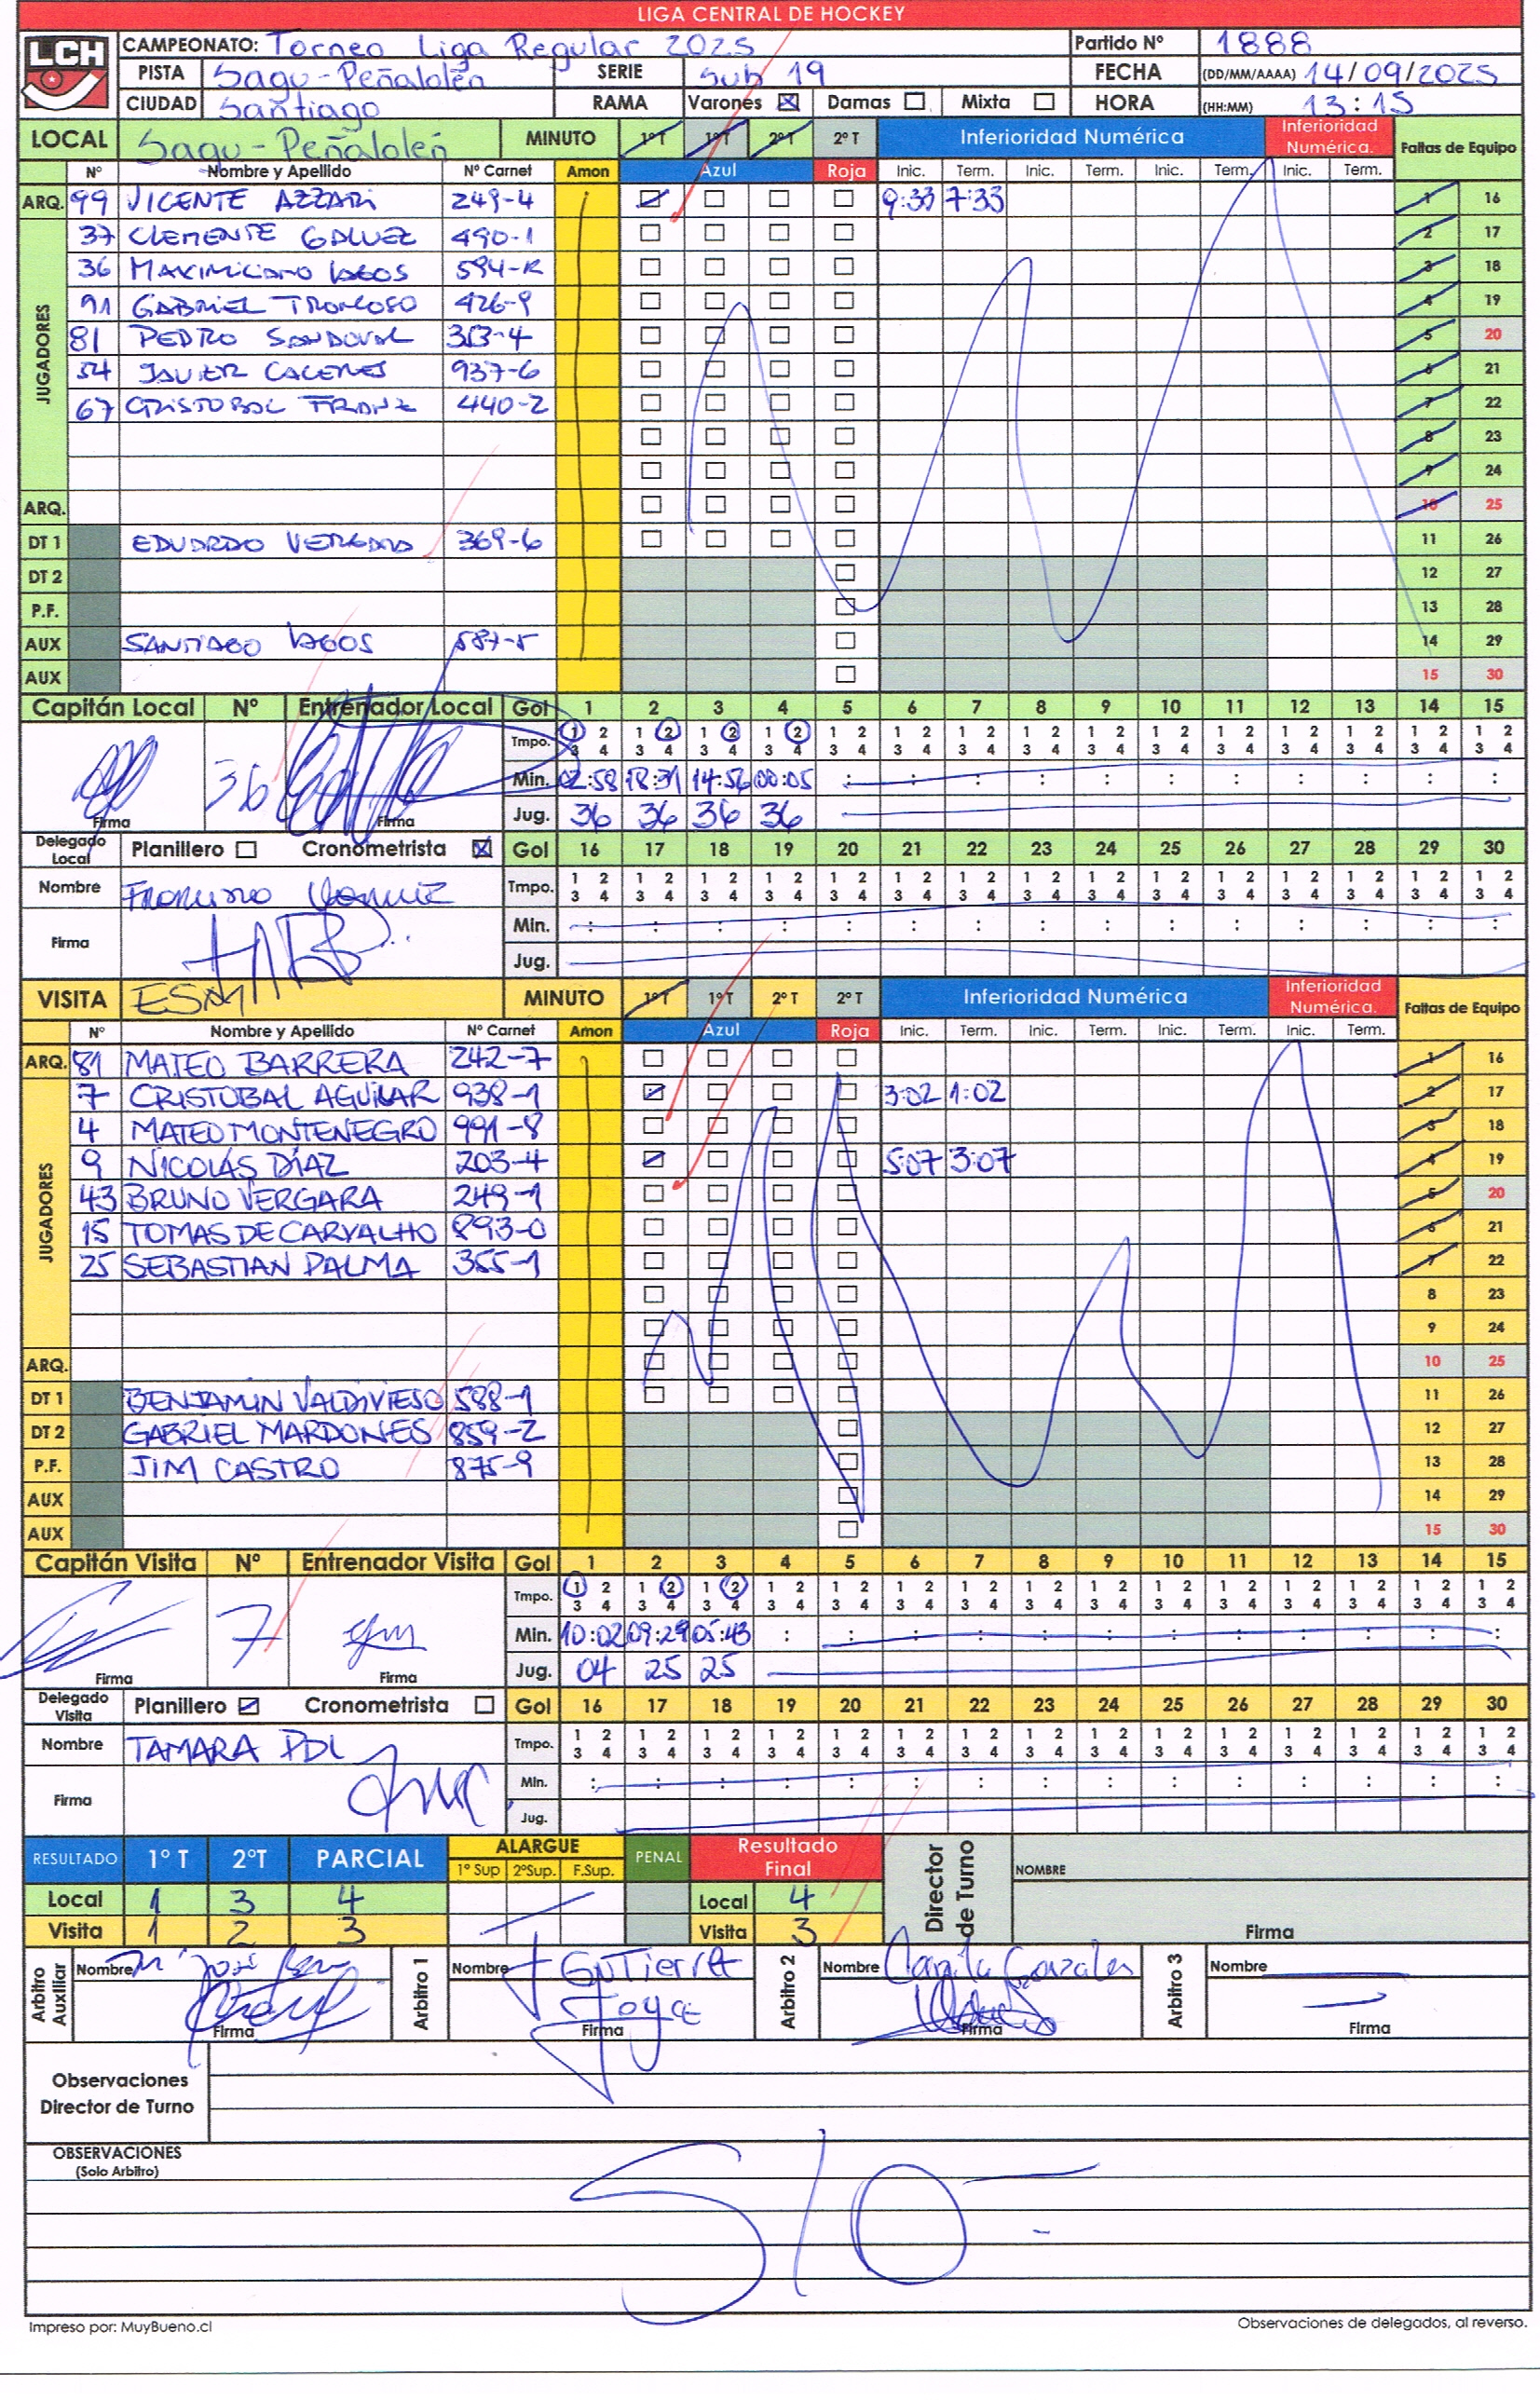 LIGA CENTRAL DE HOCKEY
LCH
CAMPEONATO: Torneo Liga Regular 2025 Partido Nº 1888
PISTA Sagu-Peñalolén SERIE Sub 19 FECHA (DD/MM/AAAA) 14/09/2025
CIUDAD Santiago RAMA Varones Damas Mixta HORA (HH:MM) 13:15
LOCAL Sagu-Peñalolén MINUTO 1º T 1º T 2º T 2º T Inferioridad Numérica Inferioridad Numérica. Faltas de Equipo
Nº Nombre y Apellido Nº Carnet Amon Azul Roja Inic. Term. Inic. Term. Inic. Term. Inic. Term.
ARQ. 99 VICENTE AZZARI 249-4 9:33 7:33 1 16
JUGADORES
37 CLEMENTE GALVEZ 490-1 2 17
36 MAXIMILIANO LAGOS 594-K 3 18
91 GABRIEL TRONCOSO 426-9 4 19
81 PEDRO SANDOVAL 353-4 5 20
54 JAVIER CACERES 937-6 6 21
67 CRISTOBAL FRANZ 440-2 7 22
8 23
9 24
ARQ. 10 25
DT 1 EDUARDO VERGARA 369-6 11 26
DT 2 12 27
P.F. 13 28
AUX SANTIAGO LAGOS 587-5 14 29
AUX 15 30
Capitán Local Nº Entrenador Local Gol 1 2 3 4 5 6 7 8 9 10 11 12 13 14 15
Tmpo. 1 2 1 2 1 2 1 2 1 2 1 2 1 2 1 2 1 2 1 2 1 2 1 2 1 2 1 2 1 2
3 4 3 4 3 4 3 4 3 4 3 4 3 4 3 4 3 4 3 4 3 4 3 4 3 4 3 4 3 4
36 Min. 02:58 18:31 14:56 00:05 : : : : : : : : : : :
Firma Firma Jug. 36 36 36 36
Delegado Local Planillero Cronometrista Gol 16 17 18 19 20 21 22 23 24 25 26 27 28 29 30
Nombre Tmpo. 1 2 1 2 1 2 1 2 1 2 1 2 1 2 1 2 1 2 1 2 1 2 1 2 1 2 1 2 1 2
3 4 3 4 3 4 3 4 3 4 3 4 3 4 3 4 3 4 3 4 3 4 3 4 3 4 3 4 3 4
Firma Min. : : : : : : : : : : : : : : :
Jug.
VISITA ESM MINUTO 1º T 1º T 2º T 2º T Inferioridad Numérica Inferioridad Numérica. Faltas de Equipo
Nº Nombre y Apellido Nº Carnet Amon Azul Roja Inic. Term. Inic. Term. Inic. Term. Inic. Term.
ARQ. 81 MATEO BARRERA 242-7 1 16
JUGADORES
7 CRISTOBAL AGUILAR 938-1 3:02 1:02 2 17
4 MATEO MONTENEGRO 991-8 3 18
9 NICOLÁS DÍAZ 203-4 5:07 3:07 4 19
43 BRUNO VERGARA 249-1 5 20
15 TOMAS DE CARVALHO 893-0 6 21
25 SEBASTIAN PALMA 355-1 7 22
8 23
9 24
ARQ. 10 25
DT 1 BENJAMIN VALDIVIESO 588-1 11 26
DT 2 GABRIEL MARDONES 859-2 12 27
P.F. JIM CASTRO 875-9 13 28
AUX 14 29
AUX 15 30
Capitán Visita Nº Entrenador Visita Gol 1 2 3 4 5 6 7 8 9 10 11 12 13 14 15
Tmpo. 1 2 1 2 1 2 1 2 1 2 1 2 1 2 1 2 1 2 1 2 1 2 1 2 1 2 1 2 1 2
3 4 3 4 3 4 3 4 3 4 3 4 3 4 3 4 3 4 3 4 3 4 3 4 3 4 3 4 3 4
7 Min. 10:02 09:29 05:43 : : : : : : : : : : : :
Firma Firma Jug. 04 25 25
Delegado Visita Planillero Cronometrista Gol 16 17 18 19 20 21 22 23 24 25 26 27 28 29 30
Nombre TAMARA PDL Tmpo. 1 2 1 2 1 2 1 2 1 2 1 2 1 2 1 2 1 2 1 2 1 2 1 2 1 2 1 2 1 2
3 4 3 4 3 4 3 4 3 4 3 4 3 4 3 4 3 4 3 4 3 4 3 4 3 4 3 4 3 4
Firma Min. : : : : : : : : : : : : : : :
Jug.
RESULTADO 1º T 2ºT PARCIAL ALARGUE 1º Sup 2ºSup. F.Sup. PENAL Resultado Final Director de Turno NOMBRE
Local 1 3 4 Local 4
Visita 1 2 3 Visita 3 Firma
Arbitro Auxiliar Nombre Arbitro 1 Nombre Gutierrez Joyce Arbitro 2 Nombre Camila Gonzales Arbitro 3 Nombre
Firma Firma Firma Firma
Observaciones
Director de Turno
OBSERVACIONES
(Solo Arbitro)
S/O-
Impreso por: MuyBueno.cl Observaciones de delegados, al reverso.